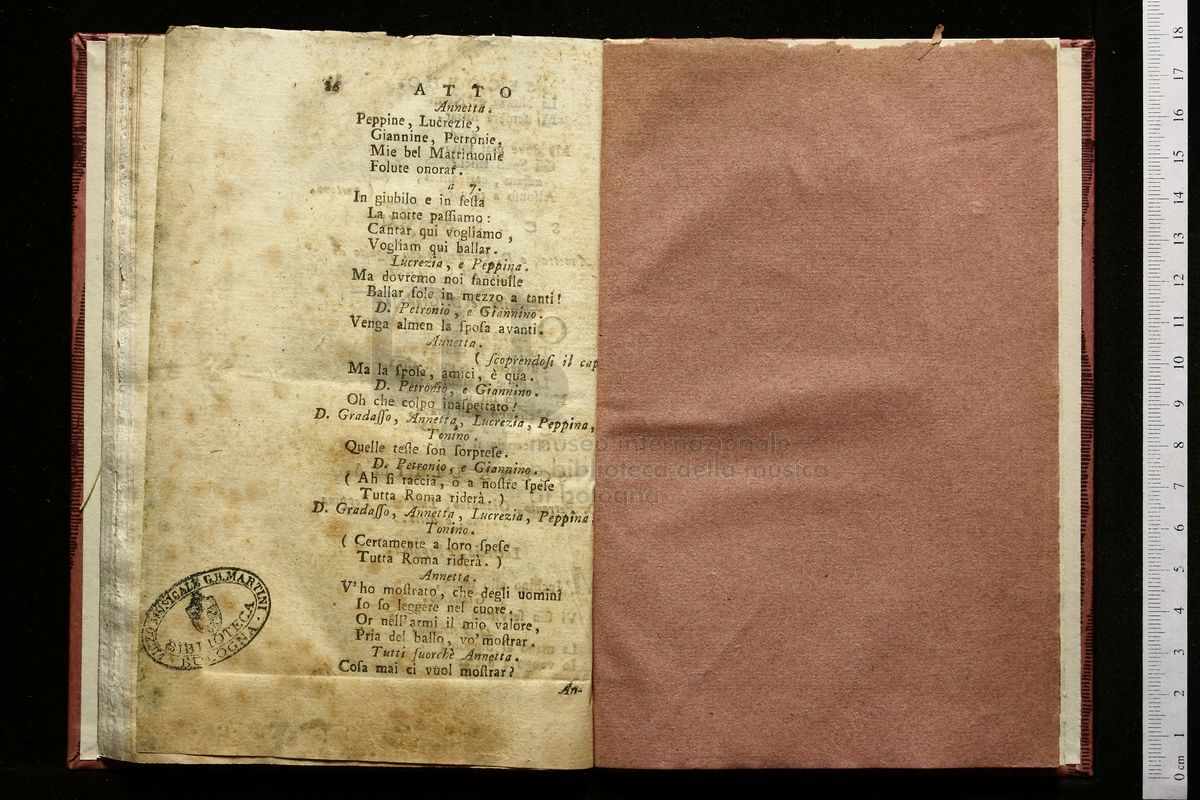 86 ATTO
Annetta.
Peppine, Lucrezie,
Giannine, Petronie,
Mie bel Matrimonie
Folute onorar.
a 7.
In giubilo e in feſta
La notte paſſiamo:
Cantar qui vogliamo,
Vogliam qui ballar.
Lucrezia, e Peppina.
Ma dovremo noi fanciulle
Ballar ſole in mezzo a tanti!
D. Petronio, e Giannino.
Venga almen la ſpoſa avanti.
Annetta.
( ſcoprendoſi il cap
Ma la ſpoſa, amici, è qua.
D. Petronio, e Giannino.
Oh che colpo inaſpettato!
D. Gradaſſo, Annetta, Lucrezia, Peppina,
Tonino.
Quelle teſte ſon ſorpreſe.
D. Petronio, e Giannino.
( Ah ſi taccia, o a noſtre ſpeſe
Tutta Roma riderà. )
D. Gradaſſo, Annetta, Lucrezia, Peppina,
Tonino.
( Certamente a loro ſpeſe
Tutta Roma riderà. )
Annetta.
V'ho moſtrato, che degli uomini
Io ſo leggere nel cuore.
Or nell'armi il mio valore,
Pria del ballo, vo' moſtrar.
Tutti fuorchè Annetta.
Coſa mai ci vuol moſtrar?
An-
LICEO MUSICALE G.B. MARTINI
BIBLIOTECA
BOLOGNA
museo internazionale
e biblioteca della musica
di bologna
0 cm 1 2 3 4 5 6 7 8 9 10 11 12 13 14 15 16 17 18